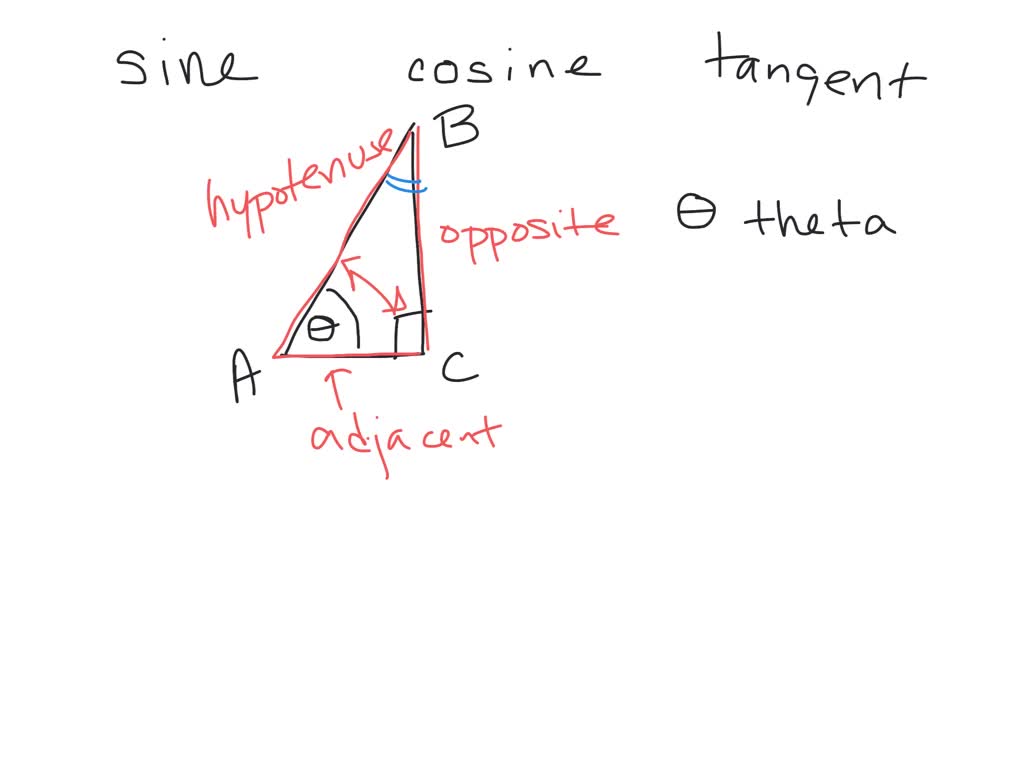 sine cosine tangent
B
hypotenuse
opposite
θ theta
θ
A
C
adjacent